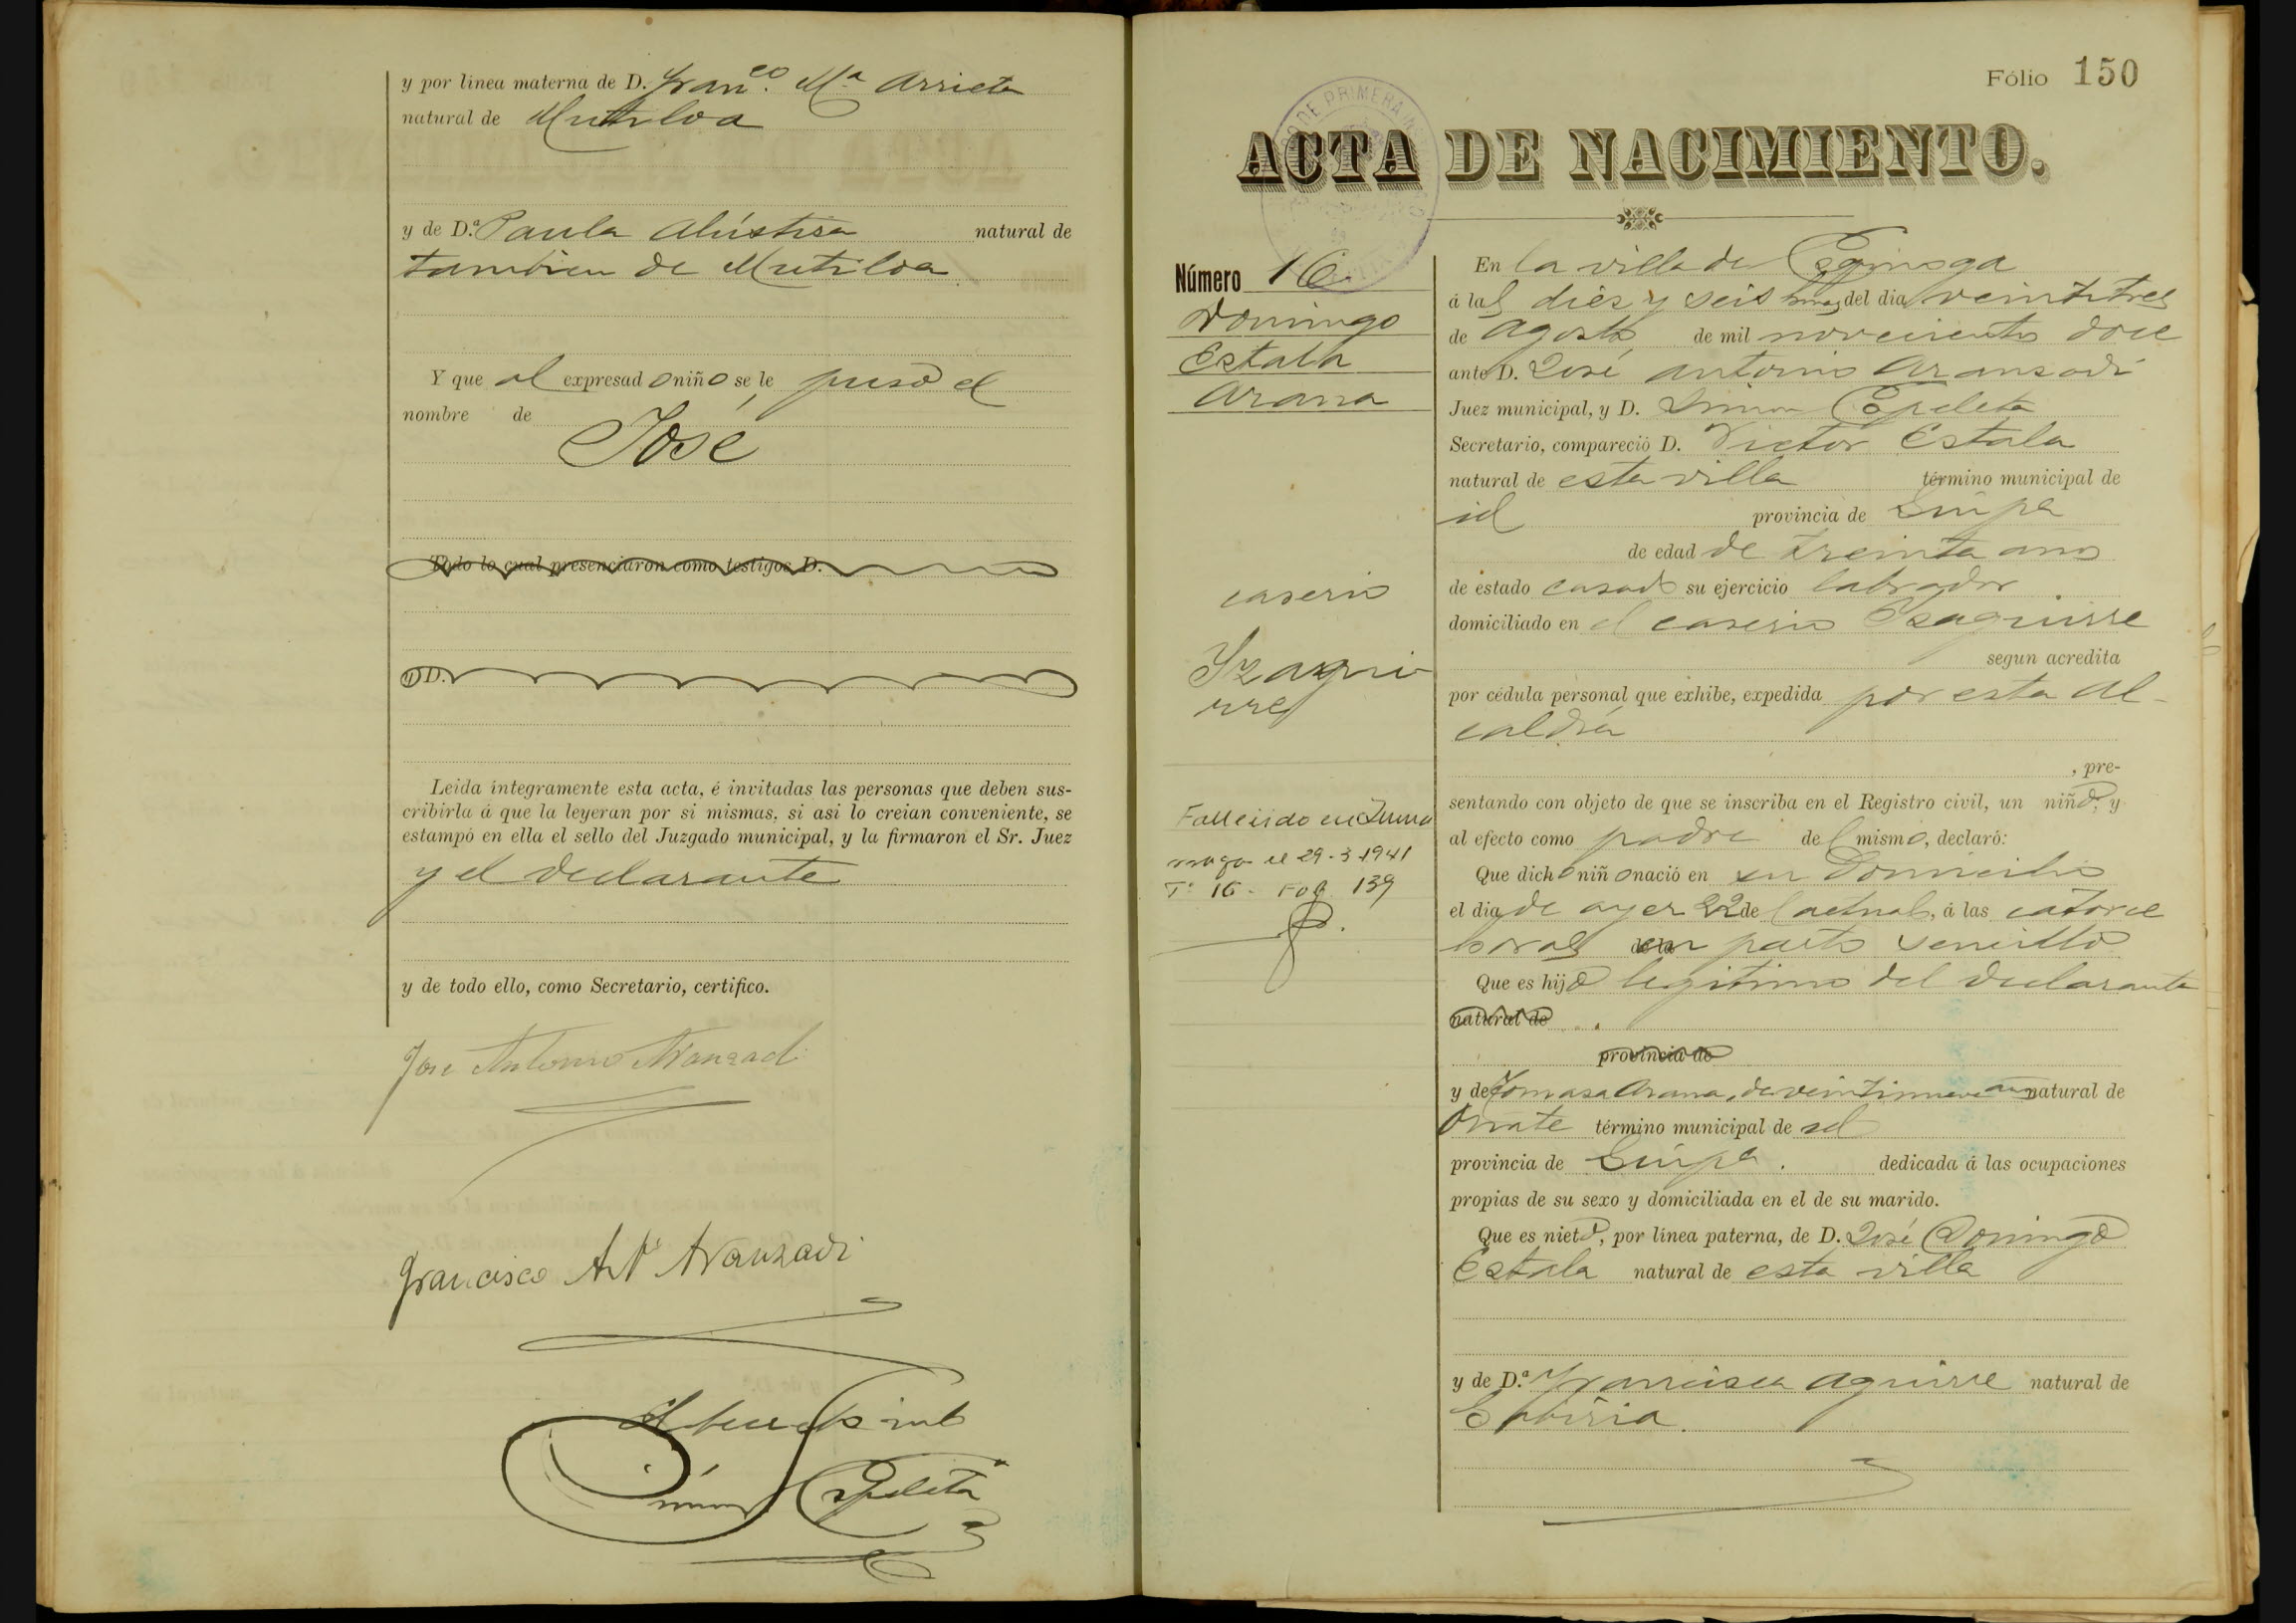 y por línea materna de D. Fran.co M.a Arrieta
natural de Mutiloa
y de D.a Paula Alústiza natural de
tambien de Mutiloa
Y que al expresado niño se le puso el
nombre de
José
Todo lo cual presenciaron como testigos D.
y D.
Leida íntegramente esta acta, é invitadas las personas que deben sus-
cribirla á que la leyeran por si mismas, si asi lo creian conveniente, se
estampó en ella el sello del Juzgado municipal, y la firmaron el Sr. Juez
y el declarante
y de todo ello, como Secretario, certifico.
Jose Antonio Aranzadi
Francisco Ant.o Aranzadi
Simon Ezpeleta
Fólio 150
ACTA DE NACIMIENTO.
Número 16
Domingo
Estala
Arana
caserio
Yzagui
rre
Fallecido en Zuma
rraga el 29-3-1941
T.o 16 - Fol 139
En la villa de Ezquioga
á las diéz y seis horas del dia veintitres
de Agosto, de mil novecientos doce
ante D. José Antonio Aranzadi
Juez municipal, y D. Simon Ezpeleta
Secretario, compareció D. Victor Estala
natural de esta villa término municipal de
id provincia de Guipa
de edad de treinta anos
de estado casado su ejercicio labrador
domiciliado en el caserio Izaguirre
segun acredita
por cédula personal que exhibe, expedida por esta Al-
caldía
, pre-
sentando con objeto de que se inscriba en el Registro civil, un niño, y
al efecto como padre del mismo, declaró:
Que dicho niño nació en su Domicilio
el dia de ayer 22 del actual, á las catorce
horas de la en parto sencillo
Que es hijo legitimo del declarante
natural de
provincia de
y de Tomasa Arana, de veintinueve anos natural de
Oñate término municipal de id
provincia de Guipa. dedicada á las ocupaciones
propias de su sexo y domiciliada en el de su marido.
Que es nieto, por línea paterna, de D. José Domingo
Estala natural de esta villa
y de D.a Francisca Aguirre natural de
Gabiria.